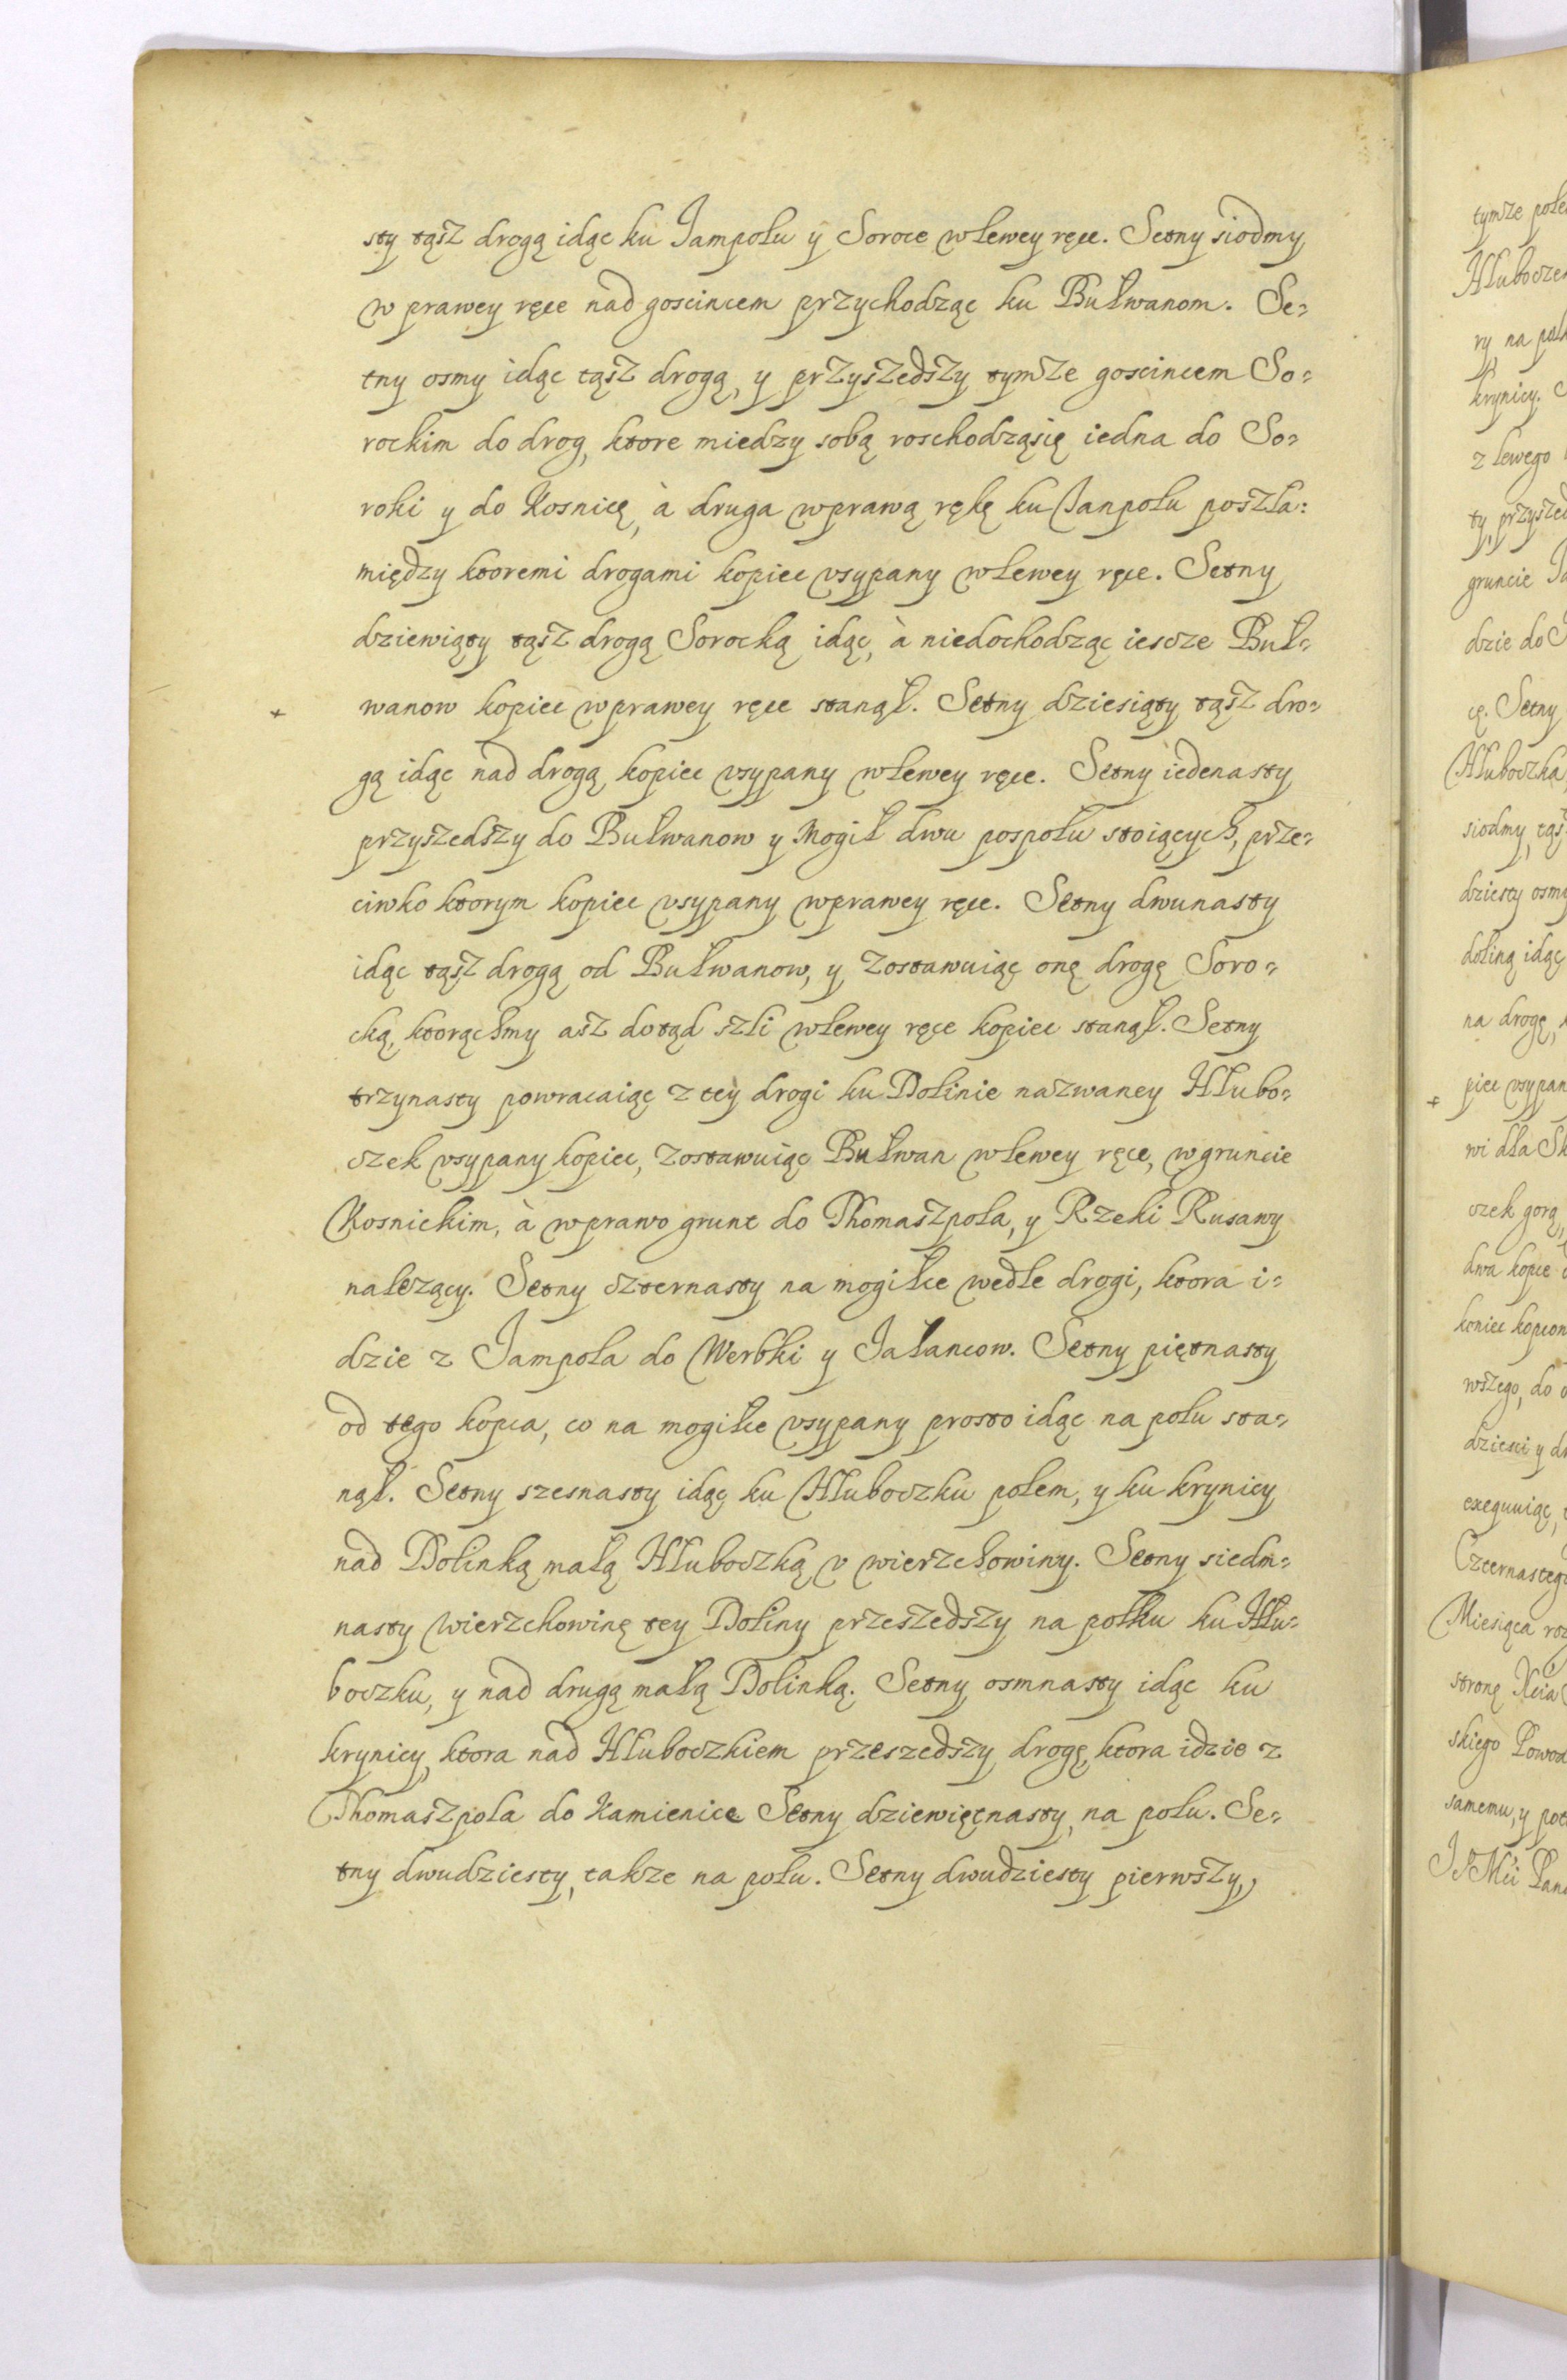 sty tąsz drogą idąc ku Jampolu y Soroce w lewey ręce. Setny siodmy
w prawey ręce nad goscincem przychodząc ku Bułwanom. Se=
tny osmy idąc tąsz drogą, y przyszedszy tymze goscincem So=
rockim do drog, ktore miedzy sobą roschodząsię iedna do So=
roki y do Kosnicę, à druga wprawą rękę ku Janpolu poszła:
między ktoremi drogami kopiec vsypany wlewey ręce. Setny
dziewiąty tąsz drogą Sorocką idąc, à niedochodząc iescze Buł=
+ wanow kopiec wprawey ręce stanął. Setny dziesiąty tąsz dro=
gą idąc nad drogą kopiec vsypany wlewey ręce. Setny iedenasty
przyszedszy do Bułwanow y Mogił dwu pospołu stoiących, prze=
ciwko ktorym kopiec vsypany wprawey ręce. Setny dwunasty
idąc tąsz drogą od Bułwanow, y zostawuiąc onę drogę Soro=
cką, ktorąchmy asz dotąd szli wlewey ręce kopiec stanął. Setny
trzynasty powracaiąc z tey drogi ku Dolinie nazwaney Hłubo=
czek vsypany kopiec, zostawuiąc Bułwan wlewey ręce, w gruncie
Kosnickim, à wprawo grunt do Thomaszpola, y Rzeki Rusawy
nalezący. Setny czternasty na mogiłce wedle drogi, ktora i=
dzie z Jampola do Werbki y Jałancow. Setny piętnasty
od tego kopca, co na mogiłce vsypany prosto idąc na polu sta=
nął. Setny szesnasty idąc ku Hłuboczku polem, y ku krynicy
nad Dolinką małą Hłuboczką v wierzchowiny. Setny siedm=
nasty wierzchowinę tey Doliny przeszedszy na polku ku Hłu=
boczku, y nad drugą małą Dolinką. Setny osmnasty idąc ku
krynicy, ktora nad Hłuboczkiem przeszedszy drogę, ktora idzie z
Thomaszpola do Kamienice Setny dziewiętnasty, na polu. Se=
tny dwudziesty, takze na polu. Setny dwudziesty pierwszy,